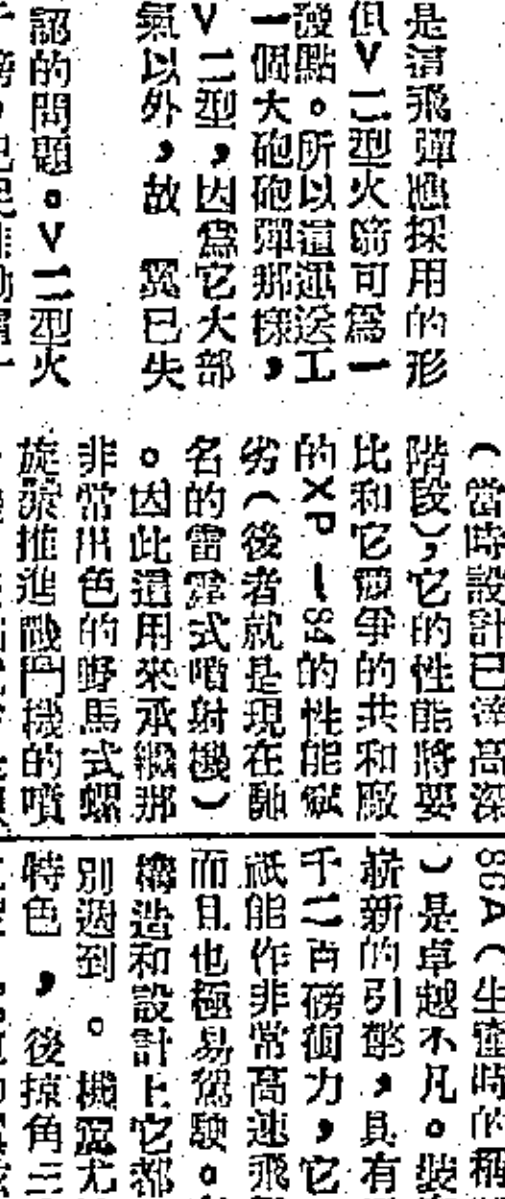 是這飛彈應採用的形
但V二型火箭可為一
發點。所以這運送工
一個大砲砲彈那樣，
V二型，因為它大部
氣以外，故 翼已失
認的問題。V二型火
（當時設計已達高深
階段），它的性能將要
比和它競爭的共和廠
的XP—84的性能
劣（後者就是現在馳
名的雷霆式噴射機）
。因此這用來承繼那
非常出色的野馬式螺
旋槳推進戰鬥機的噴
86A（生產時的稱
）是卓越不凡。裝
嶄新的引擎，具有
千二百磅衝力，它
祇能作非常高速飛
而且也極易駕駛。
構造和設計上它都
別週到。機翼尤
特色，後掠角三